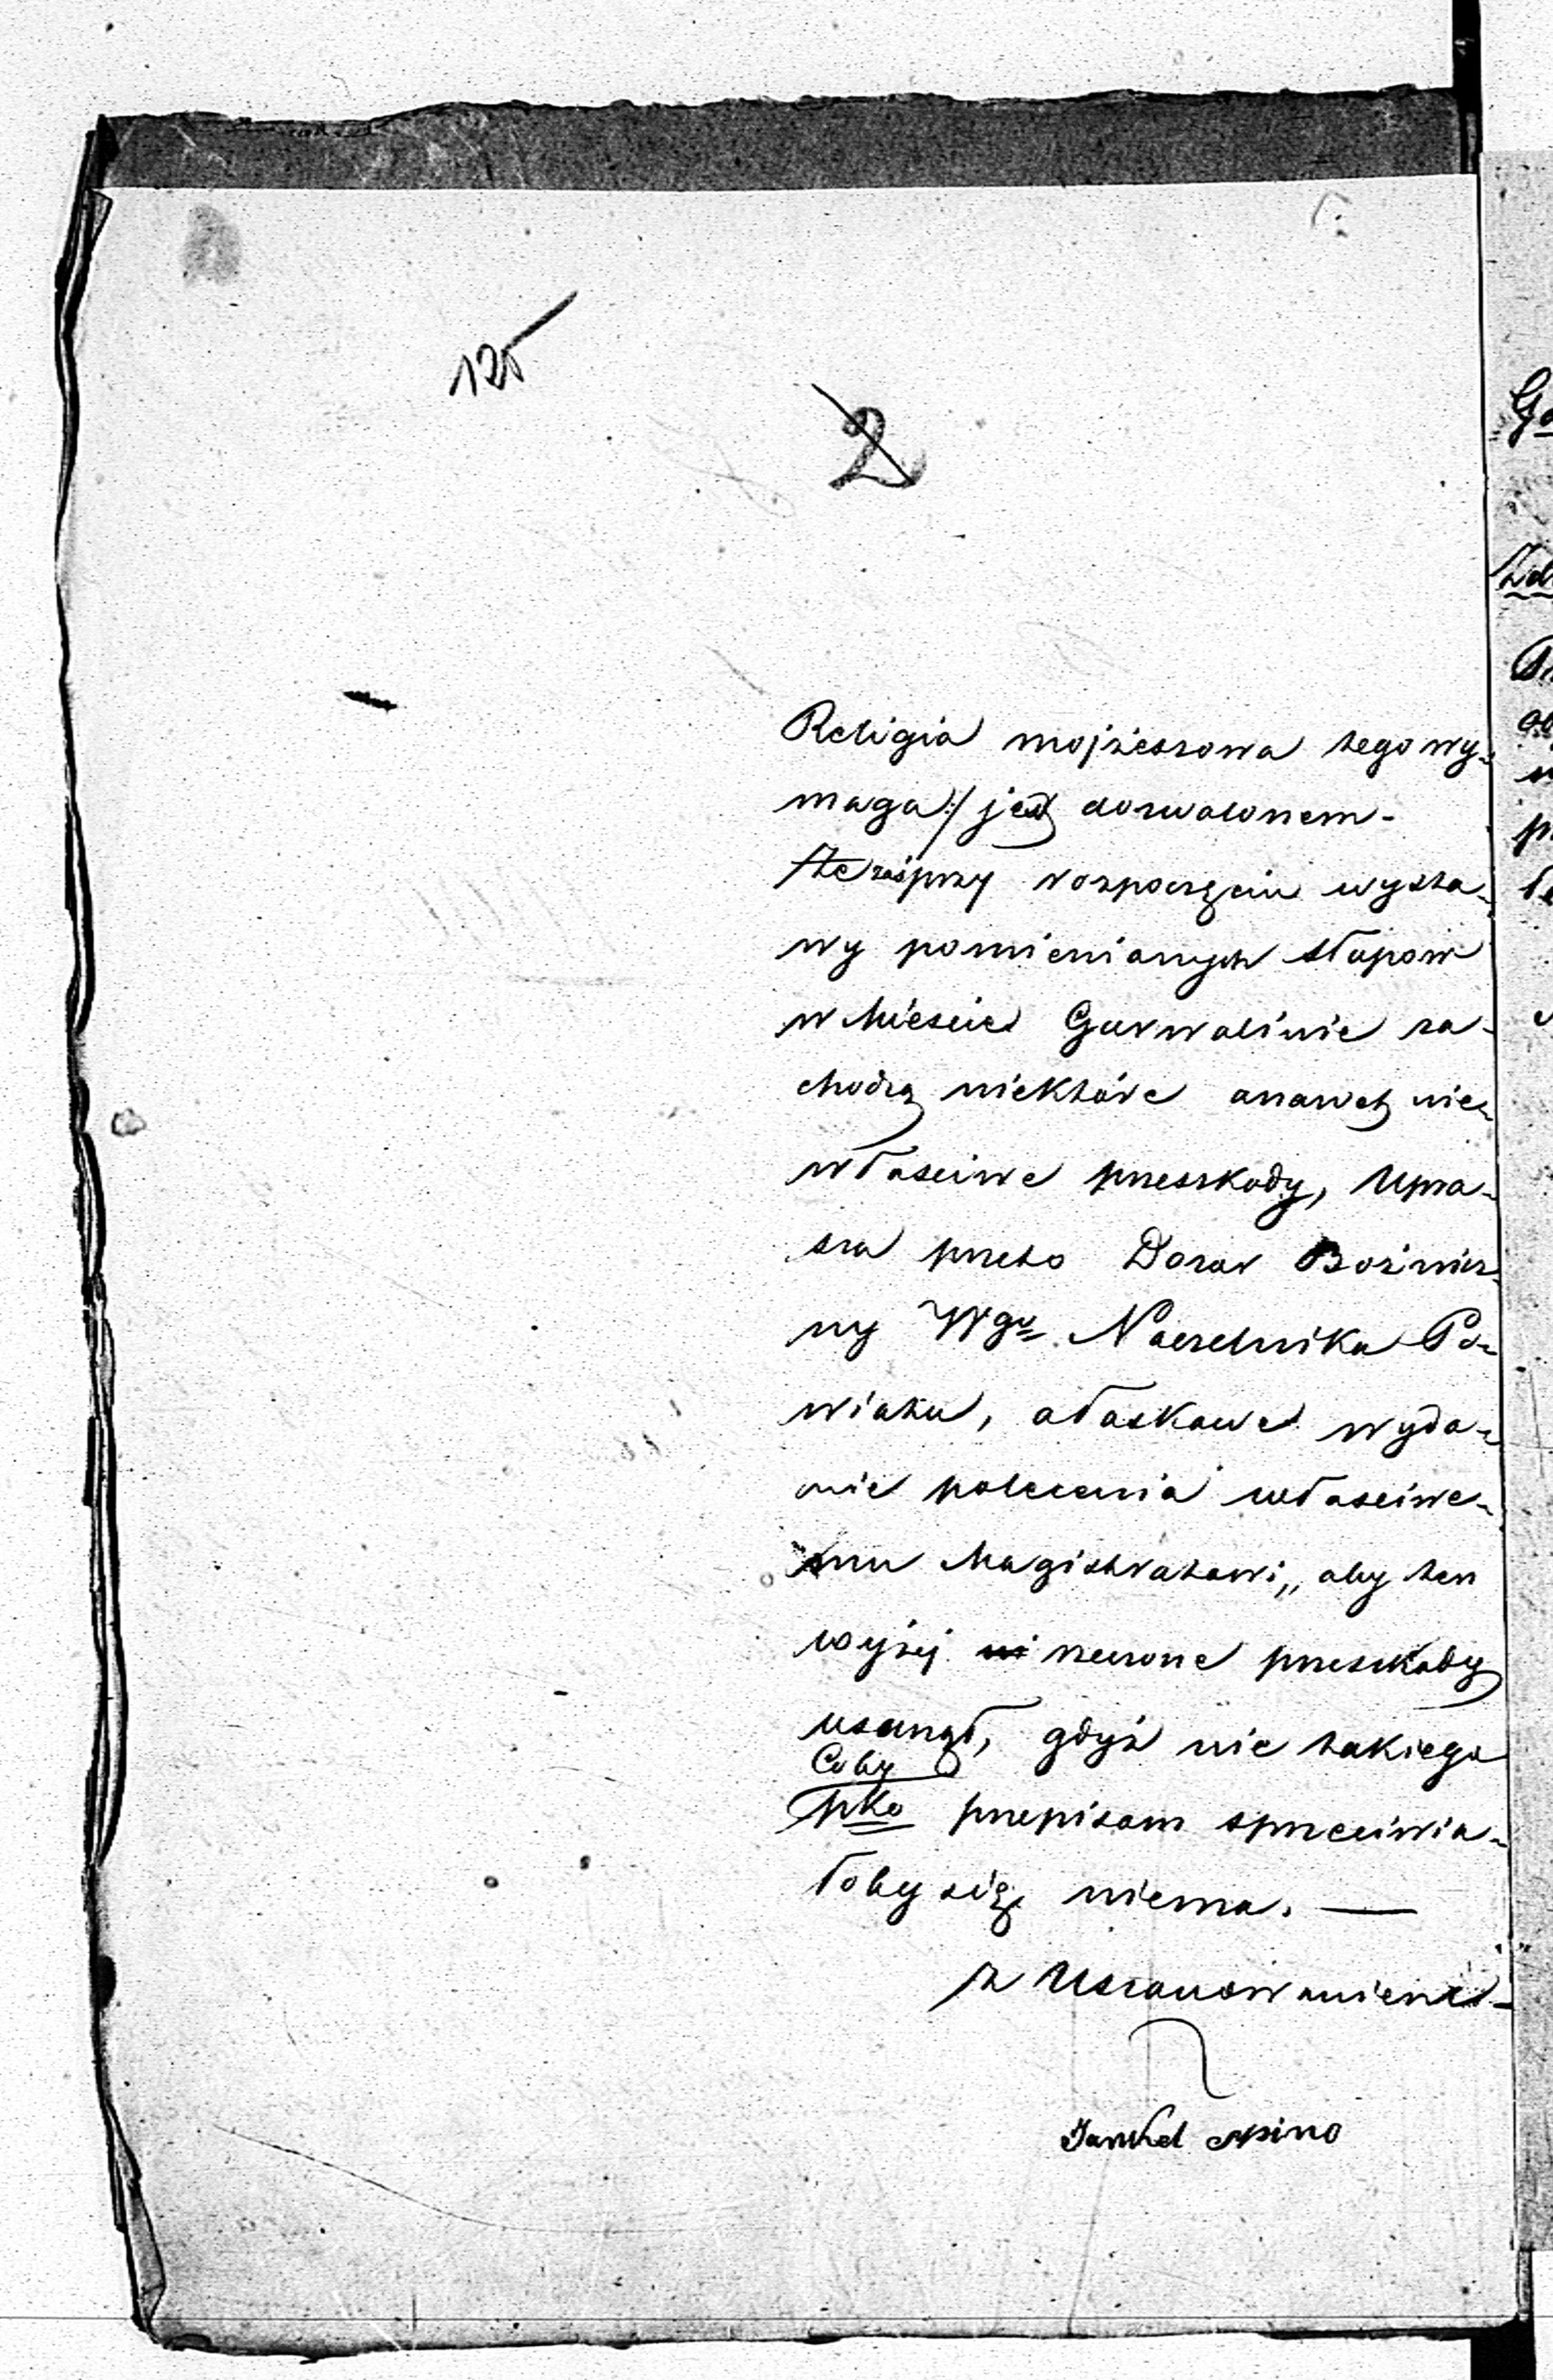 125
2
Religia mojżeszowa tego wy-
maga :/ jest dozwolonem -
Że zaś przy rozpoczęciu wysta-
wy pomienianych słupow
w Miescie Garwolinie za-
chodzą niektóre a nawet nie-
właściwe przeszkody, Upra-
sza przeto Dozor Bożnicz-
ny Wgo Naczelnika Po-
wiatu, o łaskawe wyda-
nie polecenia właściwe-
mu Magistratowi, aby ten
wyżej rzeczone przeszkody
usunął, gdyż nic takiego
Coby
pko przepisom sprzeciwia-
łoby się niema. —
Z Uszanowaniem -
Jankel